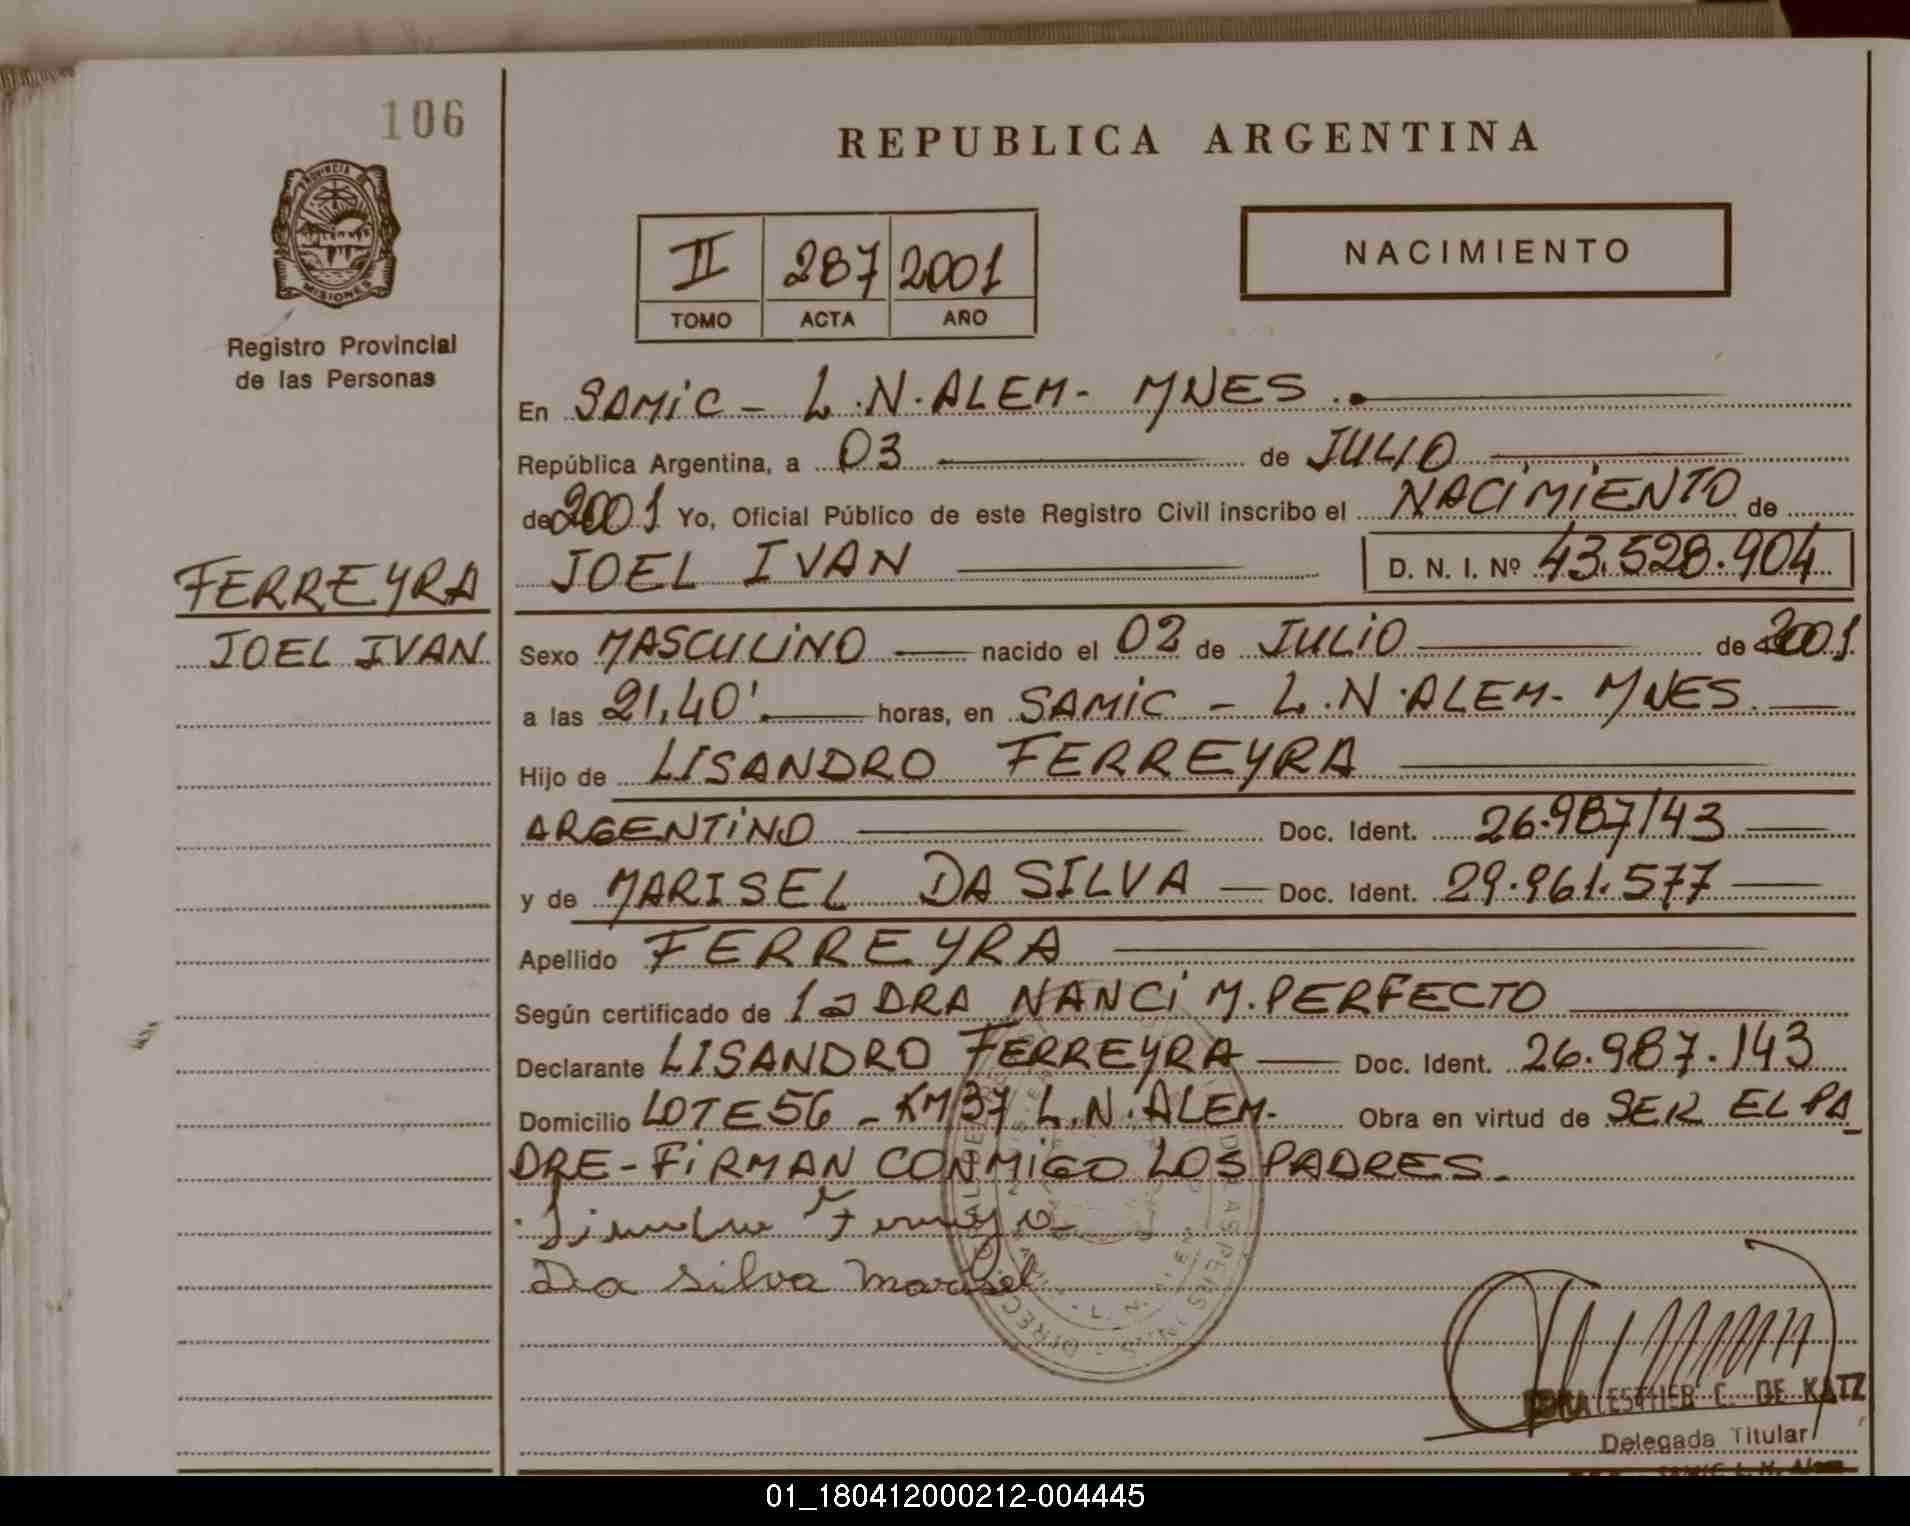 106
REPUBLICA ARGENTINA
PROVINCIA D
MISIONES
Registro Provincial
de las Personas
II 287 2001
TOMO ACTA AÑO
NACIMIENTO
En SAMIC - L.N.ALEM- MNES.
República Argentina, a 03 de JULIO
de 2001 Yo, Oficial Público de este Registro Civil inscribo el NACIMIENTO de
JOEL IVAN D. N. I. Nº 43.528.904
FERREYRA
JOEL IVAN
Sexo MASCULINO nacido el 02 de JULIO de 2001.
a las 21,40'. horas, en SAMIC - L.N.ALEM- MNES.
Hijo de LISANDRO FERREYRA
ARGENTINO Doc. Ident. 26.987/143
y de MARISEL DA SILVA Doc. Ident. 29.961.577
Apellido FERREYRA
Según certificado de la DRA NANCI M. PERFECTO
Declarante LISANDRO FERREYRA Doc. Ident. 26.987.143
Domicilio LOTE 56 - KM 37 L.N.ALEM- Obra en virtud de SER EL PA_
DRE - FIRMAN CONMIGO LOS PADRES.
Da Silva Marisel
ESTHER C. DE KATZ
Delegada Titular
01_180412000212-004445